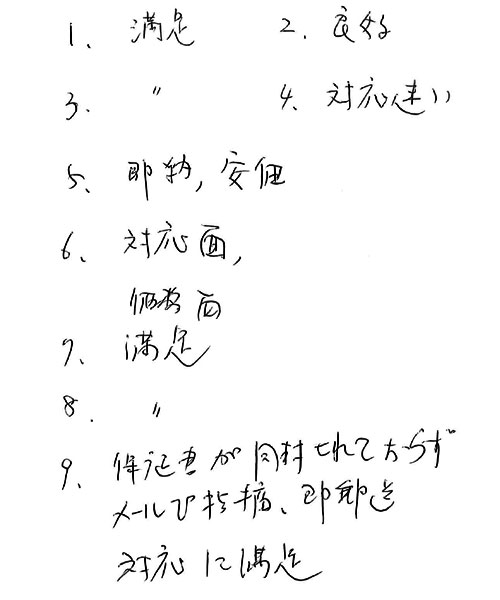 1、満足 2、良好
3、〃 4、対応速い
5、即納，安価
6、対応面，
価格面
7、満足
8．〃
9、保証書が同封されておらず
メールで指摘、即郵送
対応に満足